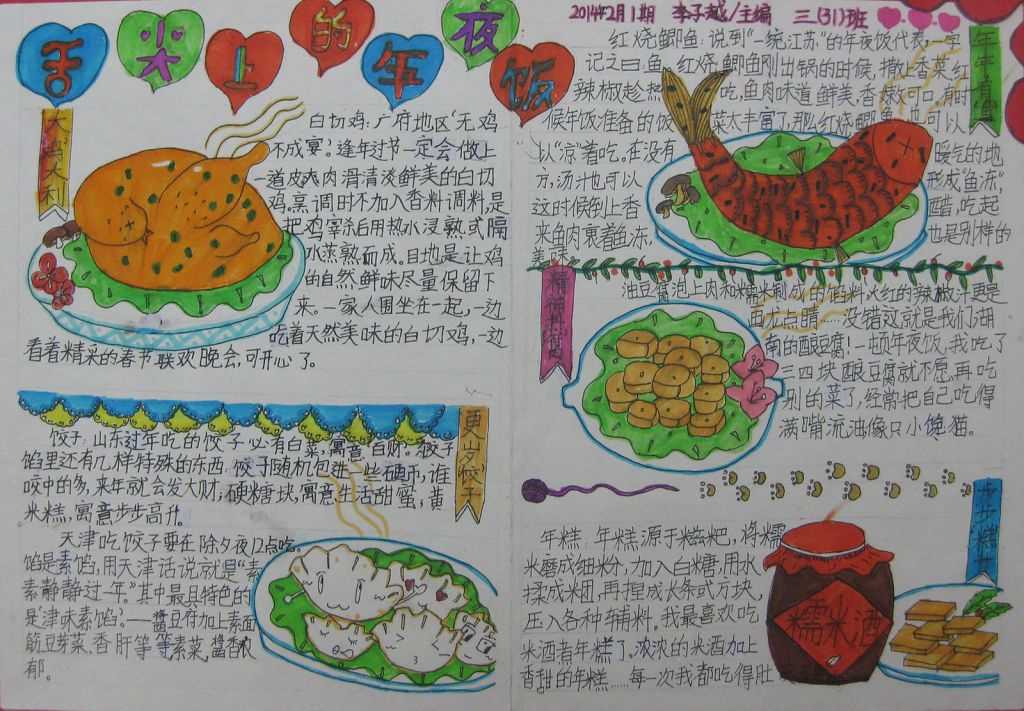 舌尖上的年夜饭
2014年2月1期 李子越/主编 三(31)班
大鸡大利
白切鸡:广府地区"无鸡
不成宴"。逢年过节一定会做上
一道皮爽肉滑清淡鲜美的白切
鸡。烹调时不加入香料调料,是
把鸡宰杀后用热水浸熟或隔
水蒸熟而成。目地是让鸡
的自然鲜味尽量保留下
来。一家人围坐在一起,一边
吃着天然美味的白切鸡,一边
看着精采的春节联欢晚会,可开心了。
更岁饺子
饺子:山东过年吃的饺子必有白菜,寓意"百财"。饺子
馅里还有几样特殊的东西:饺子随机包进一些硬币,谁
咬中的多,来年就会发大财;硬糖块,寓意生活甜蜜;黄
米糕,寓意步步高升。
天津吃饺子要在除夕夜12点吃。
馅是素馅,用天津话说就是"素
素静静过一年"。其中最具特色的
是"津味素馅"。——酱豆腐加上素面
筋豆芽菜、香肝等等素菜,酱香浓
郁。
年年有鱼
红烧鲫鱼:说到"一统江苏"的年夜饭代表,一字
记之曰:鱼。红烧鲫鱼刚出锅的时候,撒上香菜,红
辣椒趁热吃,鱼肉味道鲜美,香嫩可口。有时
候年饭准备的饭菜太丰富了,那红烧鲫鱼也可以
以"凉"着吃。在没有暖气的地
方,汤汁也可以形成"鱼冻",
这时候倒上香醋,吃起
来鱼肉裹着鱼冻,也是别样的
美味。
油豆腐泡上肉和糯米制成的馅料,火红的辣椒汁更是
画龙点睛……没错这就是我们湖
南的酿豆腐!一顿年夜饭,我吃了
三四块酿豆腐就不愿再吃
别的菜了,经常把自己吃得
满嘴流油,像只小馋猫。
步步糕升
年糕:年糕源于糍粑,将糯
米磨成细粉,加入白糖,用水
揉成米团,再捏成长条或方块,
压入各种辅料。我最喜欢吃
米酒煮年糕了。浓浓的米酒加上
香甜的年糕……每一次我都吃得肚
糯米酒